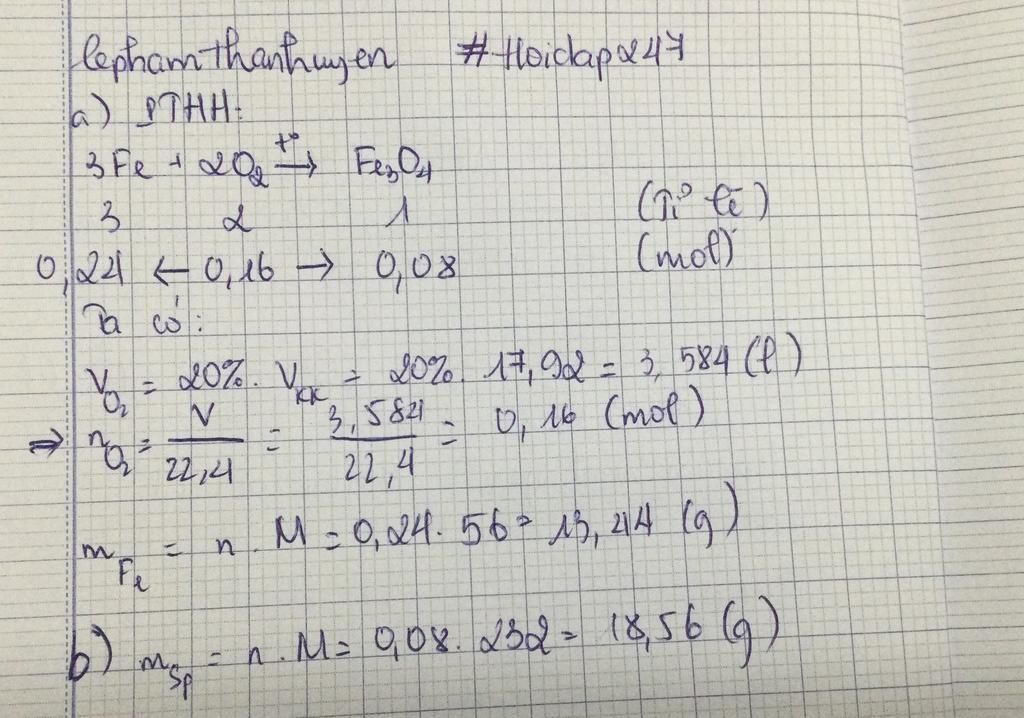 lephamthanhuyen #Hoidap247
a) PTHH:
3Fe + 2O₂ t°→ Fe₃O₄
3 2 1 (Tỉ lệ)
0,24 ← 0,16 → 0,08 (mol)
Ta có:
V_O₂ = 20%. V_KK = 20%. 17,92 = 3,584 (l)
⇒ n_O₂ = V/22,4 = 3,584/22,4 = 0,16 (mol)
m_Fe = n . M = 0,24. 56 = 13,44 (g)
b) m_Sp = n . M = 0,08. 232 = 18,56 (g)